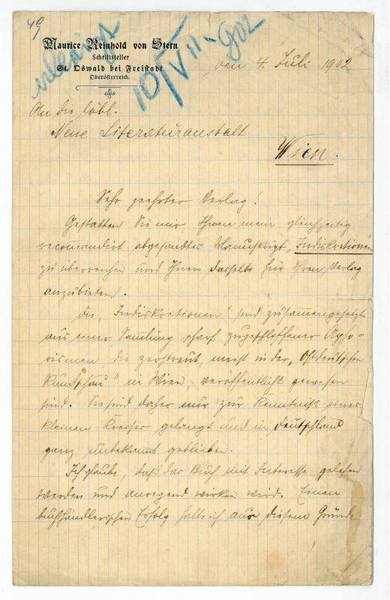 49
Maurice Reinhold von Stern
Schriftsteller
St. Oswald bei Freistadt
Oberösterreich.
erledigt
10/VII 902
den 4. Juli 1902
An die löbl.
Neue Literaturanstalt
Wien.
Sehr geehrter Verlag!
Gestatten Sie mir Ihnen mein gleichzeitig
recomandirt abgesandtes Manuskript „Indiskretionen“
zu überreichen und Ihnen dasselbe für Ihren Verlag
anzubieten.
Die „Indiskretionen“ sind zusammengesetzt
aus einer Samlung scharf zugeschliffener Apho-
rismen die zerstreut meist in der „Ostdeutschen
Rundschau“ in Wien, veröffentlicht gewesen
sind. Sie sind daher nur zur Kenntniß eines
kleinen Kreises gelangt und in Deutschland
ganz unbekannt geblieben.
Ich glaube, daß das Buch mit Interesse gelesen
werden und anregend wirken wird. Einen
buchhändlerischen Erfolg halte ich aus diesem Grunde